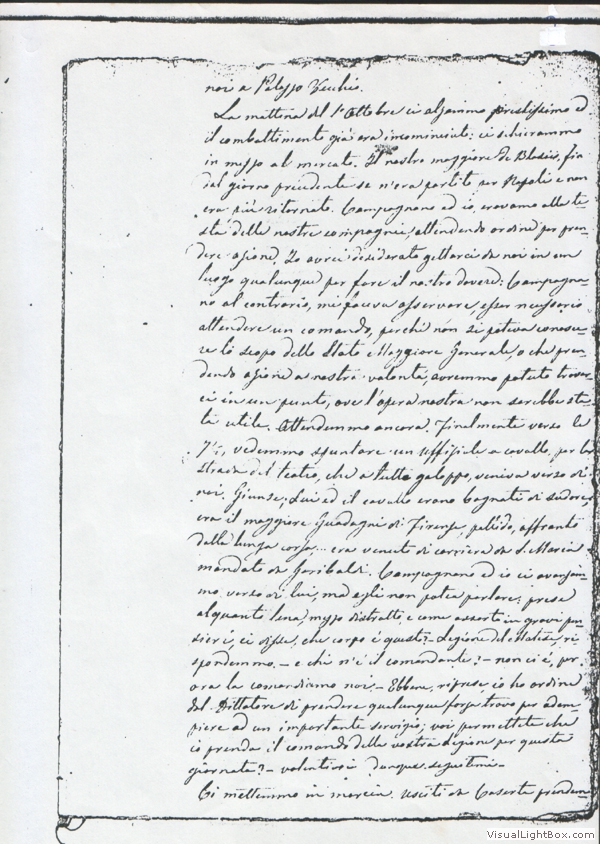 noi a Palazzo Vecchio.
La mattina del 1° Ottobre ci alzammo prestissimo ed
il combattimento già era incominciato: ci schierammo
in mezzo al mercato. Il nostro maggiore de Blasiis, fin
dal giorno precedente se n'era partito per Napoli e non
era più ritornato. Campagnano ed io, eravamo alla te-
sta delle nostre compagnie, attendendo ordini per pren-
dere azione. Io avrei desiderato gettarci da noi in un
luogo qualunque per fare il nostro dovere: Campagna-
no al contrario, mi faceva osservare, esser necessario
attendere un comando, perché non si poteva conosce-
re lo scopo dello Stato Maggiore Generale, o che pren-
dendo azione a nostra volontà, avremmo potuto trovar-
ci in un punto, ove l'opera nostra non sarebbe sta-
ta utile. Attendemmo ancora. Finalmente verso le
7½, vedemmo spuntare un uffiziale a cavallo, per la
strada del teatro, che a tutto galoppo, veniva verso di
noi. Giunse; Lui ed il cavallo erano bagnati di sudore;
era il maggiore Guadagni di Firenze, pallido, affranto
dalla lunga corsa... era venuto di carriera da S. Maria
mandato da Garibaldi. Campagnano ed io ci avanzam-
mo verso di lui, ma egli non potea parlare; prese
alquanto lena, mezzo distratto, e come assorto in gravi pen-
sieri, ci disse, che corpo è questo? - Legione del Matese, ri-
spondemmo. - e chi n'è il comandante? - non ci è, per
ora la comandiamo noi. - Ebbene, riprese, io ho ordine
del Dittatore di prendere qualunque forza trovo per adem-
piere ad un importante servizio; voi permettete che
io prenda il comando della vostra legione per questa
giornata? - volentieri dunque seguitemi -
Ci mettemmo in marcia. Usciti da Caserta prendem-
VisualLightBox.com